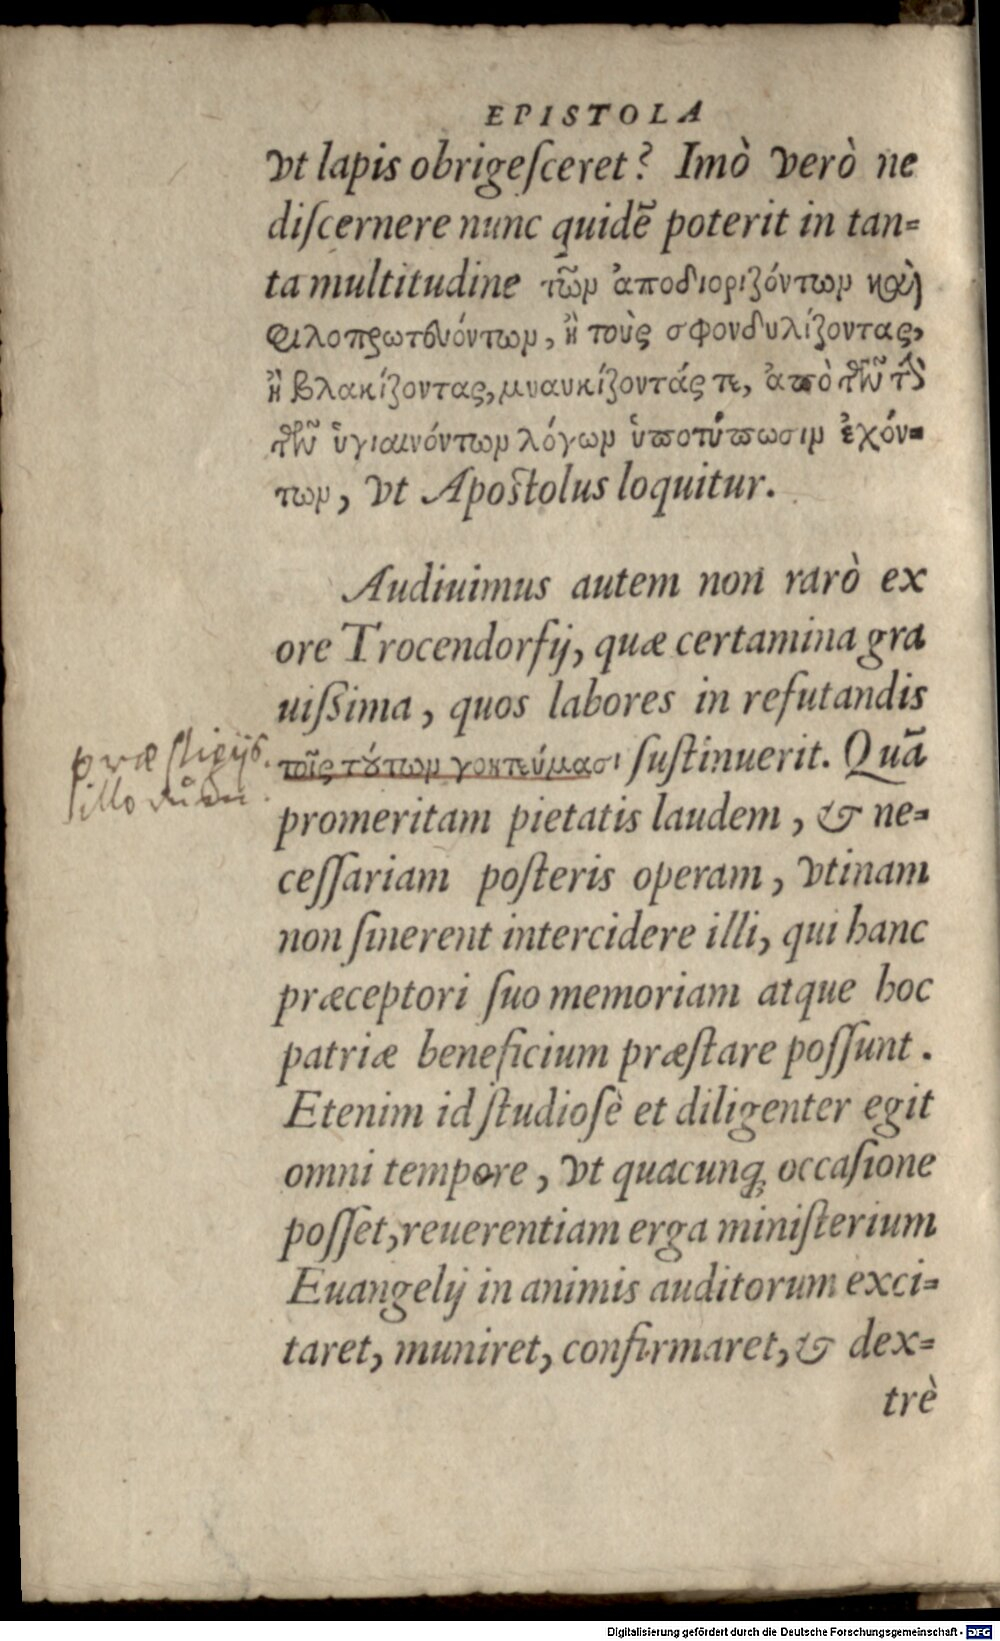 EPISTOLA
vt lapis obrigeſceret? Imò verò ne
diſcernere nunc quidē poterit in tan=
ta multitudine τῶν ἀποδιοριζόντων καὶ
φιλοπρωτευόντων, ἢ τοὺς σφονδυλίζοντας,
ἢ βλακίζοντας, μυαυκίζοντάς τε, ἀπὸ τῶν τὴν
τῶν ὑγιαινόντων λόγων ὑποτύπωσιν ἐχόν=
των, vt Apoſtolus loquitur.
Audiuimus autem non rarò ex
ore Trocendorfij, quæ certamina gra
uiſsima, quos labores in refutandis
præſtigijs
illorum
τοῖς τούτων γοητεύμασι ſuſtinuerit. Quā
promeritam pietatis laudem, & ne=
ceſſariam poſteris operam, vtinam
non ſinerent intercidere illi, qui hanc
præceptori ſuo memoriam atque hoc
patriæ beneficium præſtare poſſunt.
Etenim id ſtudioſè et diligenter egit
omni tempore, vt quacunq; occaſione
poſſet, reuerentiam erga miniſterium
Euangelij in animis auditorum exci=
taret, muniret, confirmaret, & dex=
trè
Digitalisierung gefördert durch die Deutsche Forschungsgemeinschaft - DFG